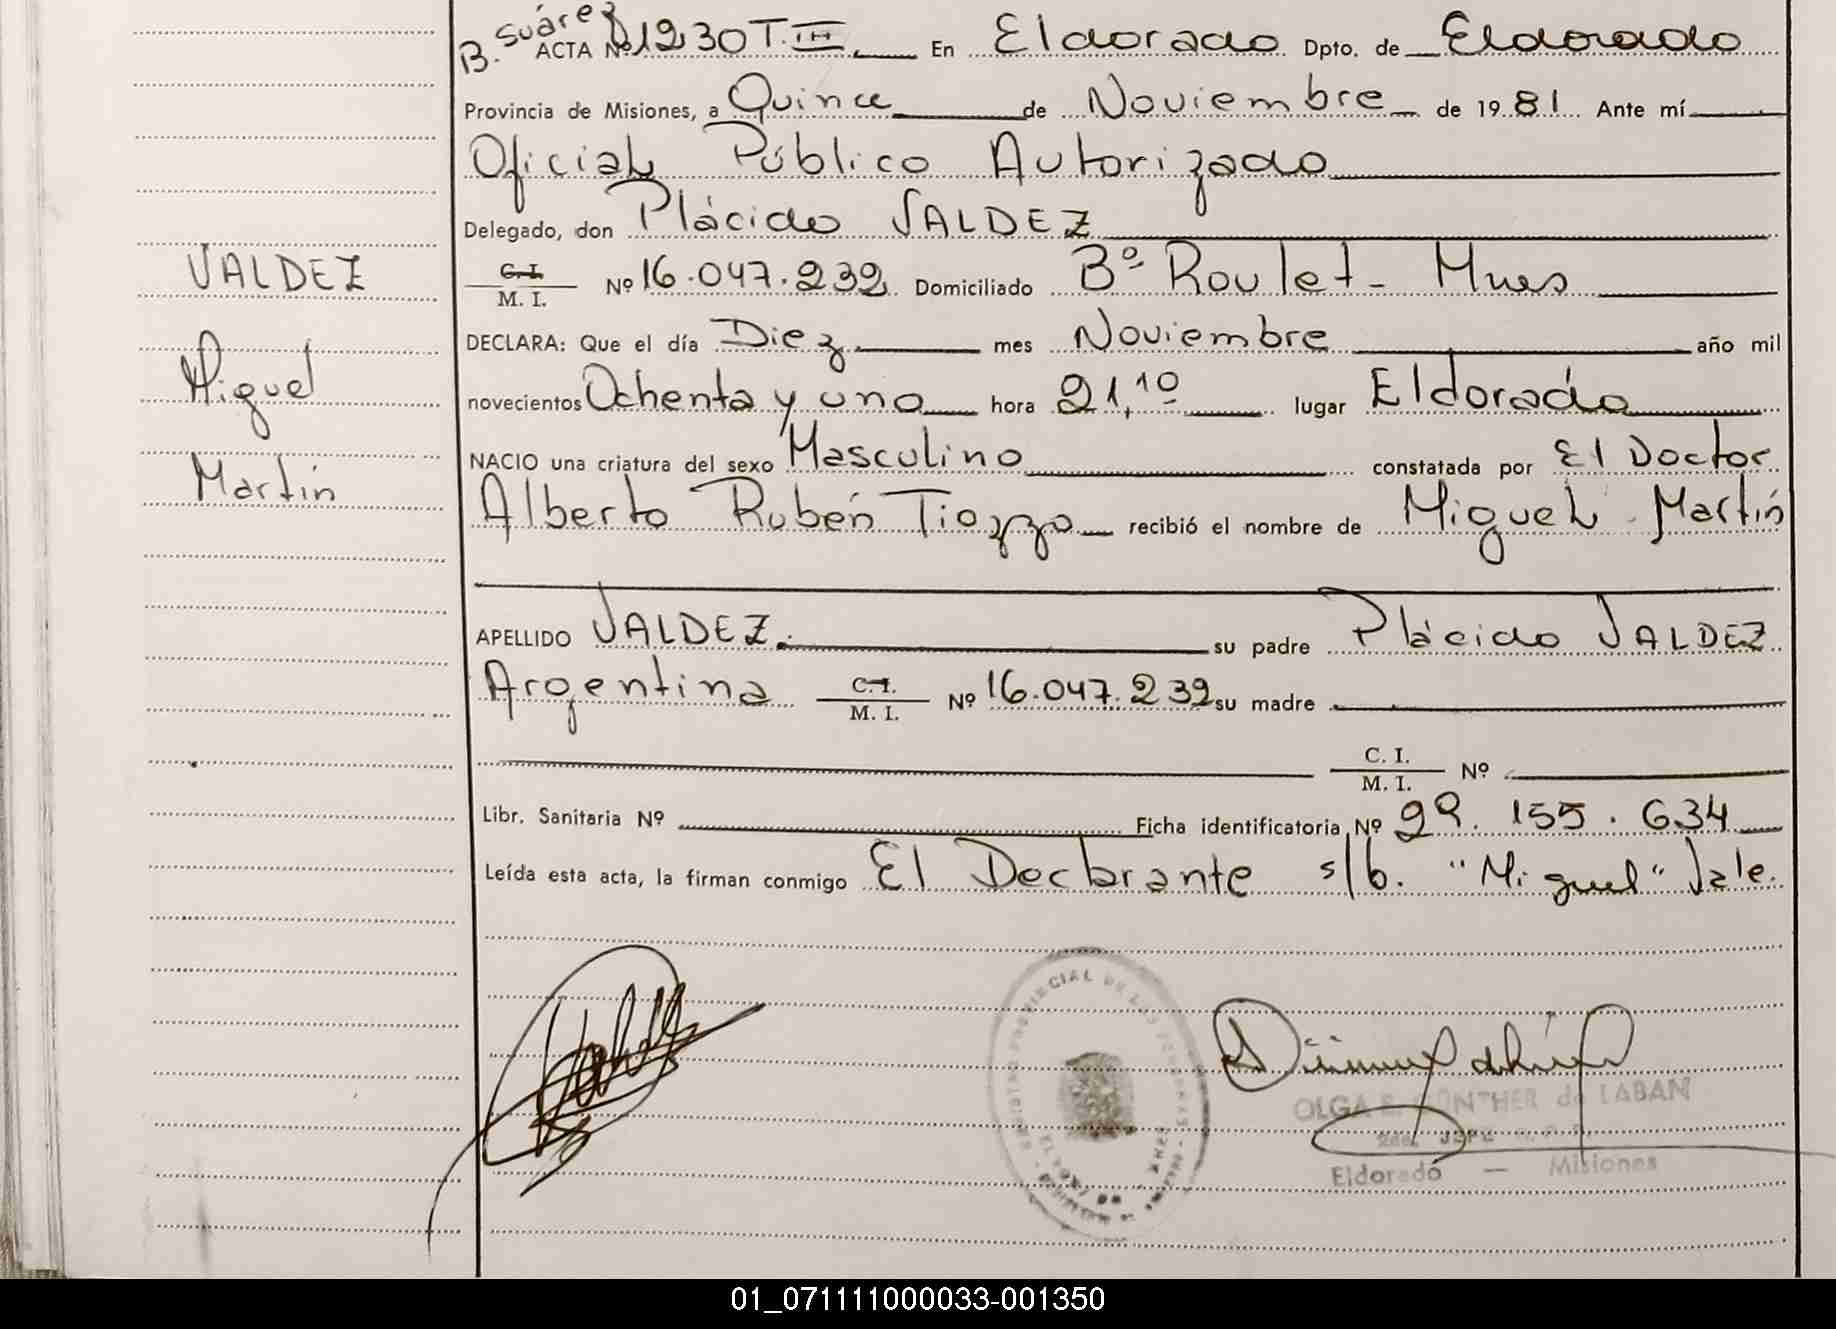 B. Suárez
ACTA Nº 1230 T. III. En Eldorado Dpto. de Eldorado
Provincia de Misiones, a Quince de Noviembre de 1981 Ante mí
Oficial Público Autorizado
Delegado, don Plácido VALDEZ
VALDEZ
C. I. / M. I. Nº 16.047.232 Domiciliado Bº Roulet - Mnes
DECLARA: Que el día Diez mes Noviembre año mil
Miguel
novecientos Ochenta y uno hora 21,10 lugar Eldorado
NACIO una criatura del sexo Masculino constatada por El Doctor
Martín
Alberto Rubén Tiozzo recibió el nombre de Miguel Martín
APELLIDO VALDEZ. su padre Plácido VALDEZ
Argentina C. I. / M. I. Nº 16.047.232 su madre
C. I. / M. I. Nº
Libr. Sanitaria Nº Ficha identificatoria Nº 29.155.634
Leída esta acta, la firman conmigo El Declarante s/b. "Miguel" Vale.
REGISTRO PROVINCIAL DE LAS PERSONAS
OLGA E. GÜNTHER de LABAN
2da. JEFE R. P. P.
Eldorado — Misiones
01_071111000033-001350